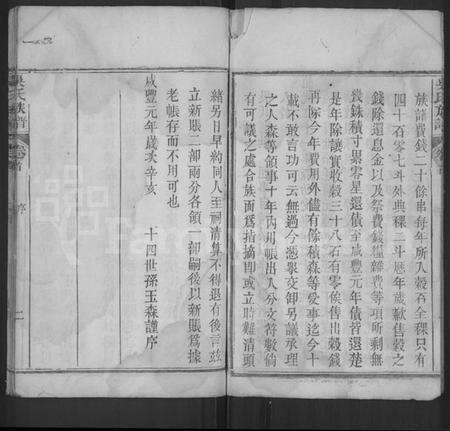 族譜費錢二十餘串每年所入穀石全稞只有
四十石零七斗外典稞二斗歷年歲歉售穀之
錢除還息金以及祭費錢糧雜費等項所剩無
幾銖積寸累零星還債至咸豐元年債皆還楚
是年除讓實收穀三十八石有零俟售出穀錢
再除今年費用外儘有餘積森等愛事迄今十
載不敢言功可云無過今憑眾交卸另議承理
之人森等領事十年內用帳出入分文符數倘
有可議之處合族面爲指摘即或立時難清頭
緒另日早約同人至祠清算不得退有後言茲
立新賬二部兩分各領一部嗣後以新賬爲據
老帳存而不用可也
咸豐元年歲次辛亥
十四世孫玉森謹序
吳氏族譜
卷首
序
二